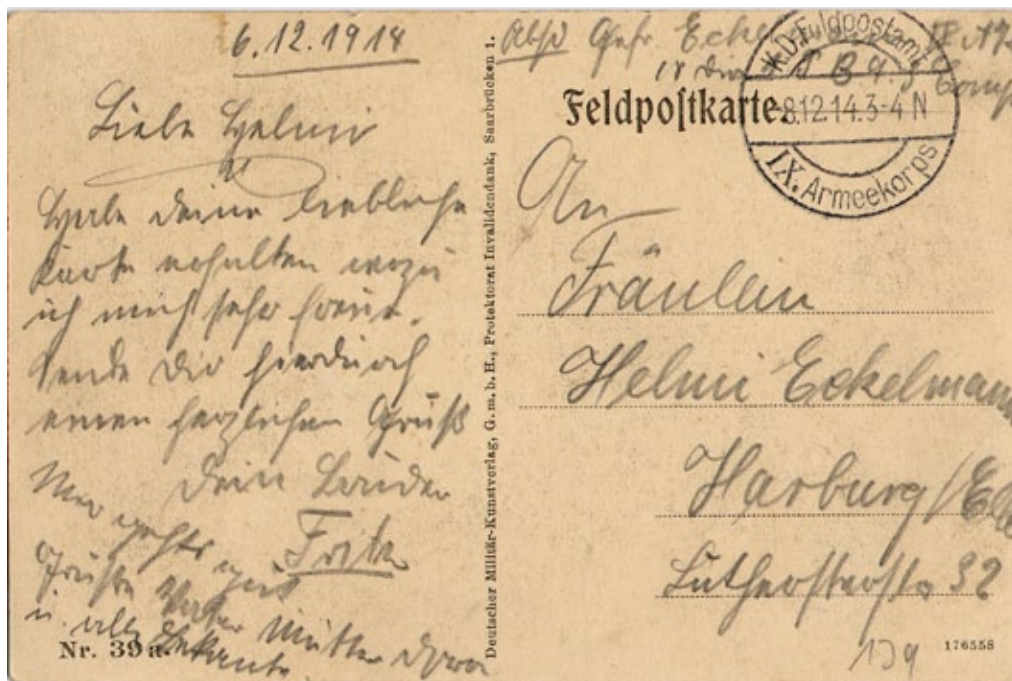 6.12.1914
Liebe Helmi
Habe deine liebliche
Karte erhalten wozu
ich mich sehr freue.
sende Dir hierdurch
einen herzlichen Gruß
Dein Bruder
Fritz
Mir gehts gut
Grüße Vater Mutter Dora
u. alle Bekannte
Nr. 39 a.
Deutscher Militär-Kunstverlag, G. m. b. H., Protektorat Invalidendank, Saarbrücken 1.
Absd Gefr. IX A
Comp
Feldpostkarte
K.D. Feldpostamt
8.12.14.3-4 N
IX. Armeekorps
An
Fräulein
Helmi Eckelmann
Harburg/
Lutherstraße 32
139
176558